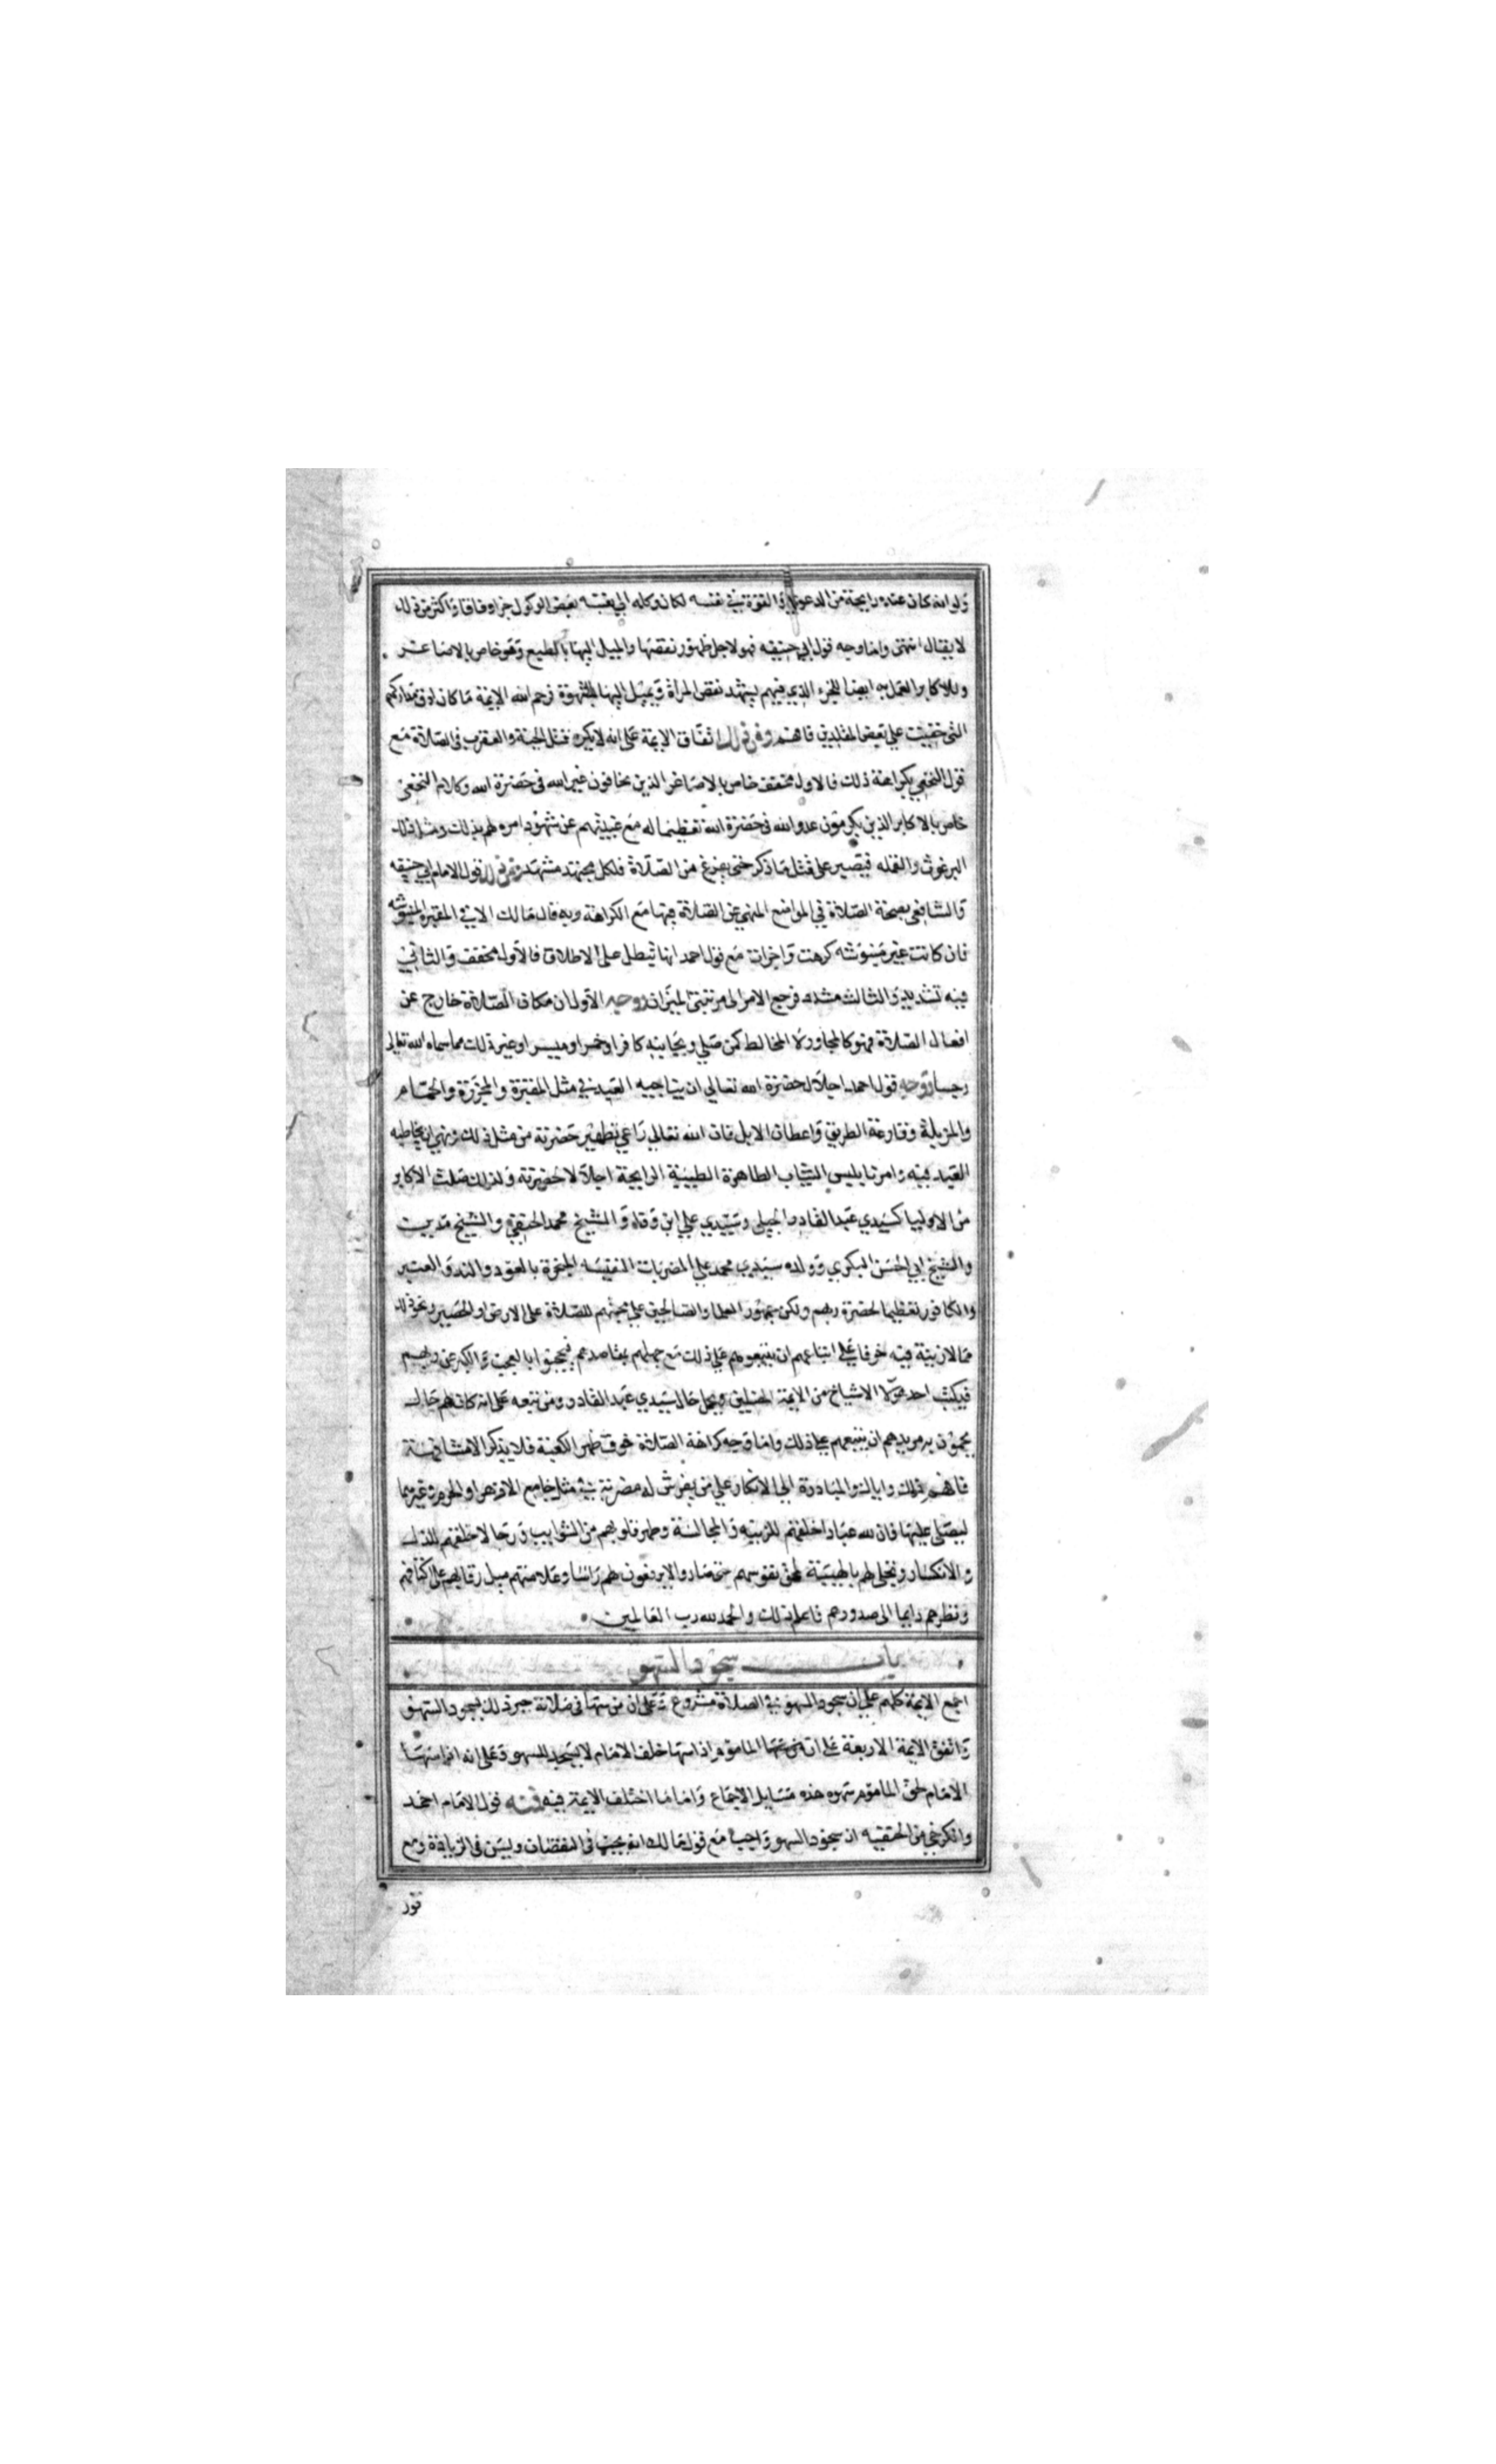 ولو انه كان عنده رايحة من الدعوي في القوة في نفسه لكان وكله الي نفسه بعض الوكول جزا وفاقا واكثر من ذلك
لا يقال انتهى واما وجه قول ابي حنيفه فهو لاجل ظهور نقصها والميل اليها بالطبع وهو خاص بالاصاغر
وللاكابر العمل به ايضا للجزء الذي فيهم يشهد نقص المراة ويميل اليها بالشهوة فرحم الله الايمة ما كان ادق مداركهم
التي خفيت على بعض المقلدين فافهم ومن ذلك اتفاق الايمة على انه لا يكره قتل الحية والعقرب في الصلاة مع
قول النخعي بكراهة ذلك فالاول مخفف خاص بالاصاغر الذين يخافون غير الله في حضرة الله وكلام النخعي
خاص بالاكابر الذين يكرمون عدو الله في حضرة الله تعظيما له مع غيبتهم عن شهود امره لهم بذلك ومثل ذلك
البرغوث والقمله فيصير على قتل ما ذكر حتى يفرغ من الصلاة فلكل مجتهد مشهد ومن ذلك قول الامام ابي حنيفه
والشافعي بصحة الصلاة في المواضع المنهي عن الصلاة فيها مع الكراهة وبه قال مالك الا في المقبرة المنبوشه
فان كانت غير منبوشه كرهت واجزات مع قول احمد انها تبطل على الاطلاق فالاول مخفف والثاني
فيه تشديد والثالث مشدد فرجع الامر الى مرتبتي الميزان ووجه الاول ان مكان الصلاة خارج عن
افعال الصلاة فهو كالمجاور لا المخالط كمن صلي وبجانبه كافر او خمر او ميسر او غير ذلك مما سماه الله تعالى
رجسا ووجه قول احمد اجلال حضرة الله تعالى ان يناجيه العبد في مثل المقبرة والمجزرة والحمام
والمزبلة وقارعة الطريق واعطان الابل فان الله تعالى راعي تطهير حضرته من مثل ذلك ونهي ان يخاطبه
العبد فيه وامرنا بلبس الثياب الطاهرة الطيبة الرايحة اجلالا لحضرته ولذلك صلت الاكابر
من الاوليا كسيدي عبد القادر الجيلي وسيدي علي ابن وفاه والشيخ محمد الحنفي والشيخ مدين
والشيخ ابي الحسن البكري وولده سيدي محمد علي المضربات النفيسه المبخرة بالعود والند والعنبر
والكافور تعظيما لحضرة ربهم ولكن جمهور العلما والصالحين علي محبتهم للصلاة على الارض او الحصير ونحو ذلك
مما لا زينة فيه خوفا علي اتباعهم ان يتبعوهم علي ذلك مع جهلهم بمقاصدهم فيحجبوا بالعجب والكبر عن ربهم
فيكتب احد هولا الاشياخ من الايمة المضلين ويحمل حال سيدي عبد القادر ومن تبعه على انه كان لهم حال
يحمون به مريدهم ان يتبعهم علي ذلك واما وجه كراهة الصلاة فوق ظهر الكعبة فلا يذكر الا مشافهة
فافهم ذلك واياك والمبادرة الى الانكار علي من يفرش له مضربة في مثل جامع الازهر او الحرم وغيرهما
ليصلي عليها فان لله عبادا خلقهم للزينه والمجالسة وطهر قلوبهم من الشوايب ورجالا خلقهم للذل
والانكسار وتجلى لهم بالهيبة لمحق نفوسهم حتى صاروا لا يرفعون لهم راسا وعلامتهم ميل رقابهم على اكتافهم
ونظرهم دايما الى صدورهم فاعلم ذلك والحمد لله رب العالمين
باب سجود السهو
اجمع الايمة كلهم على ان سجود السهو في الصلاة مشروع وعلى ان من سها في صلاته جبر ذلك بسجود السهو
واتفق الايمة الاربعة على ان الماموم اذا سها خلف الامام لا يسجد للسهو وعلى انه اذا سها
الامام لحق الماموم سهوه هذه مسايل الاجماع واما ما اختلف الايمة فيه فمنه قول الامام احمد
والكرخي من الحنفيه ان سجود السهو واجب مع قول مالك انه يجب في النقصان ويسن في الزيادة ومع
قول